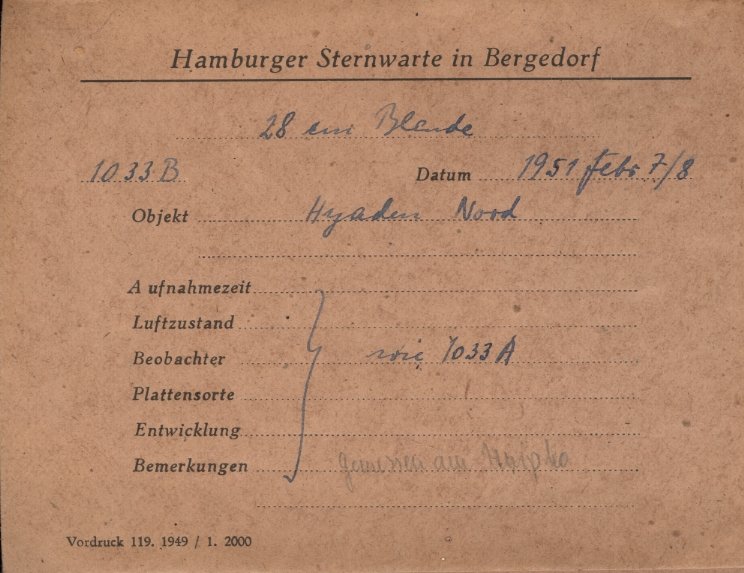 Hamburger Sternwarte in Bergedorf
28 cm Blende
1033 B Datum 1951 Febr 7/8
Objekt Hyaden Nord
Aufnahmezeit
Luftzustand
Beobachter wie 1033 A
Plattensorte
Entwicklung
Bemerkungen gemessen am
Vordruck 119. 1949 / 1. 2000